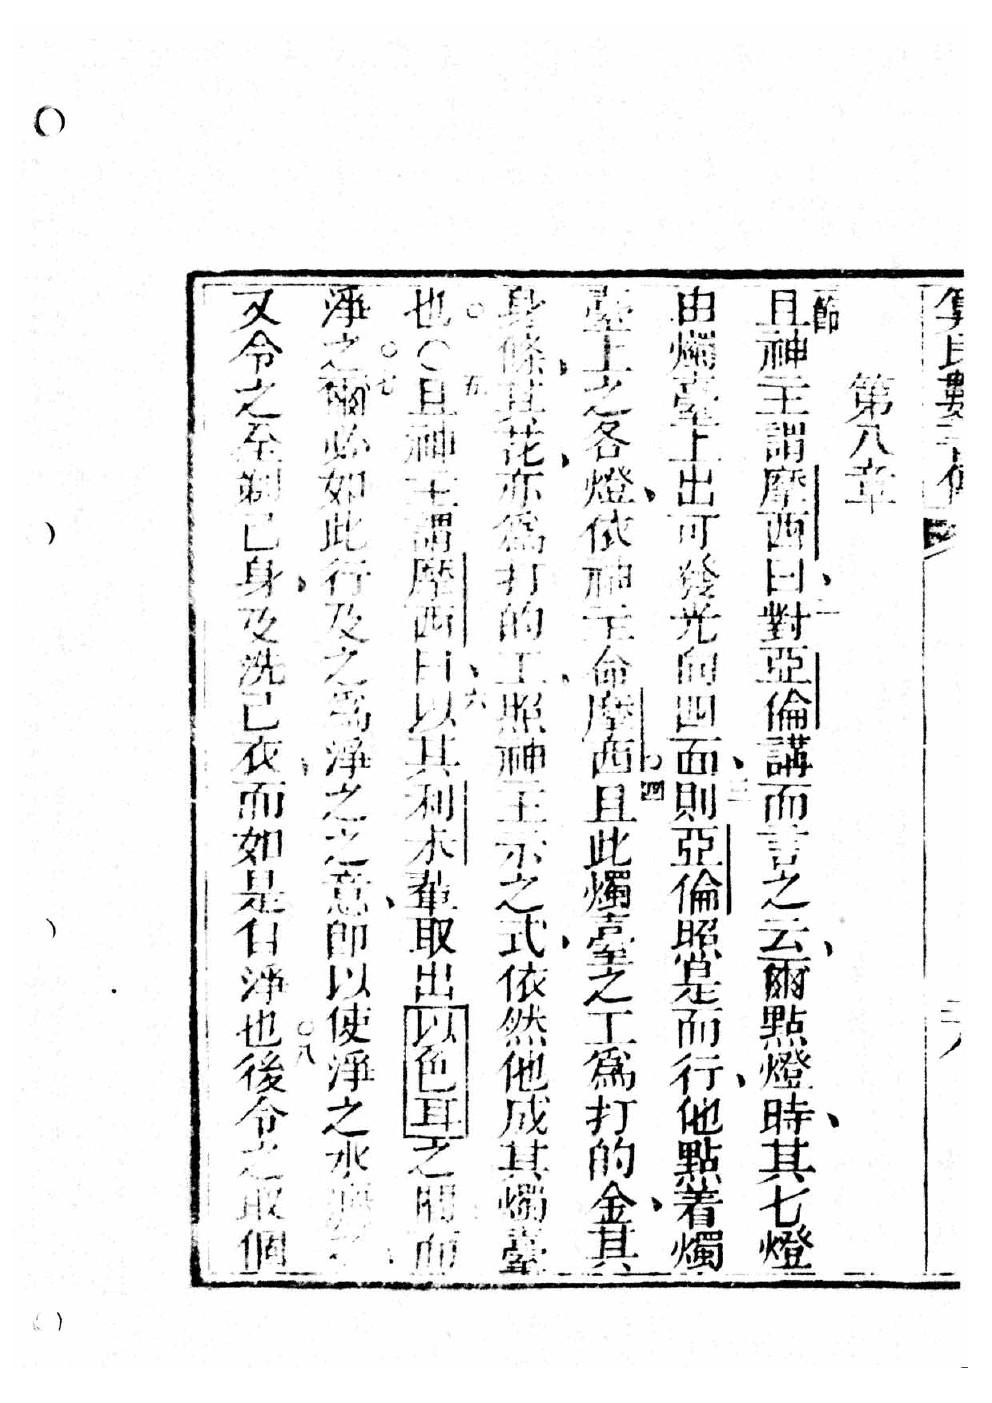 算民數書傳
第八章
節 且神主謂摩西曰、二對亞倫講而言之云、爾點燈時、其七燈
由燭臺上出可發光向四面、三則亞倫照是而行、他點着燭
臺上之各燈、依神主命摩西。四且此燭臺之工爲打的金、其
身條、其花、亦爲打的工、照神主示之式、依然他成其燭臺
也○○五且神主謂摩西曰、六以其利未輩取出以色耳之間而
淨之。○七爾必如此行及之爲淨之之意、卽以使淨之水灑之、
又令之至剃己身、及洗己衣、而如是自淨也。○八後令之取個